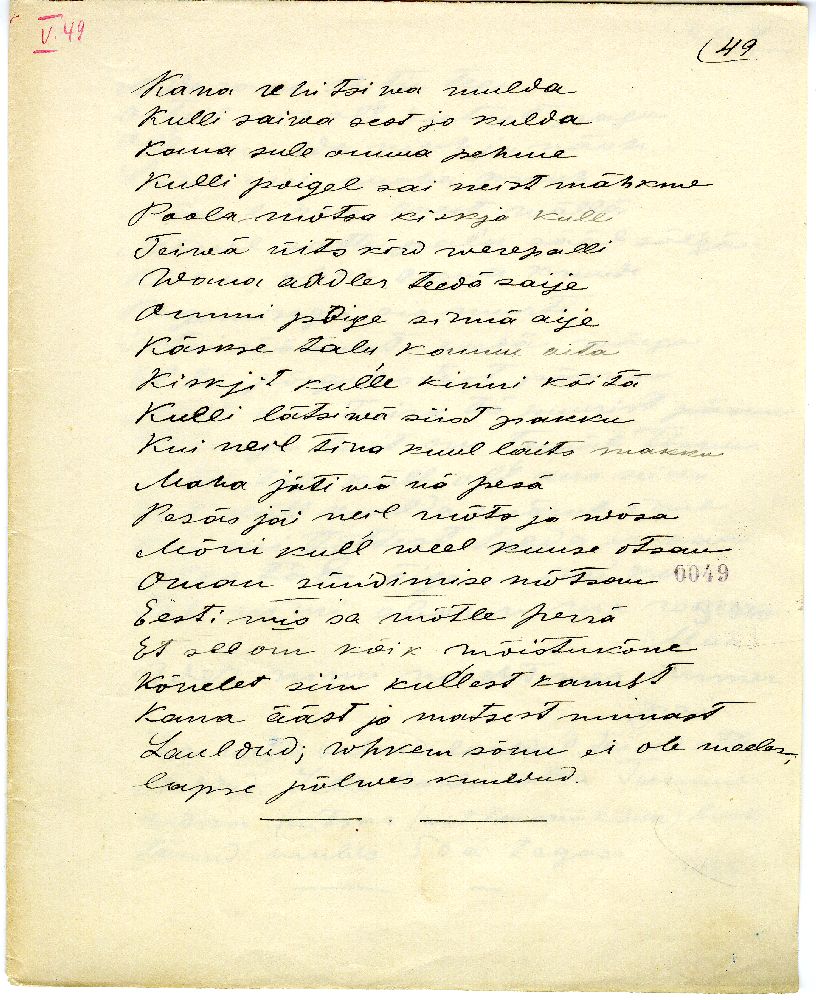 V. 49
(49
Kana tehitsiwa mulda
Kulli saiwa sest jo kulda
Kana sule omma pehme
Kulli poigel sai neist mähkme
Poola mõtsa kiskja kulli
Teiwä üits kõrd werepalli
Wana addler teedä saije
Ommi poige sinnä aije
Käskse talu kannu aita
Kiskjit kulle kinni köitä
Kulli lätsiwä siist pakku
Kui neil tina kuul läits makku
Maha jätiwä nä pesä
Pesäs jäi neil mõts ja wõsa
Mõni kull weel kuuse otsan
Oman sündimise mõtsan
0049
Eesti mis sa mõtle perrä
Et see om kõik mõistukõne
Kõnelet siin kullest kanust
Kana ääst ja matsest munast
Lauldud; rohkem sõnu ei ole meeles,
lapse põlwes kuuldud.